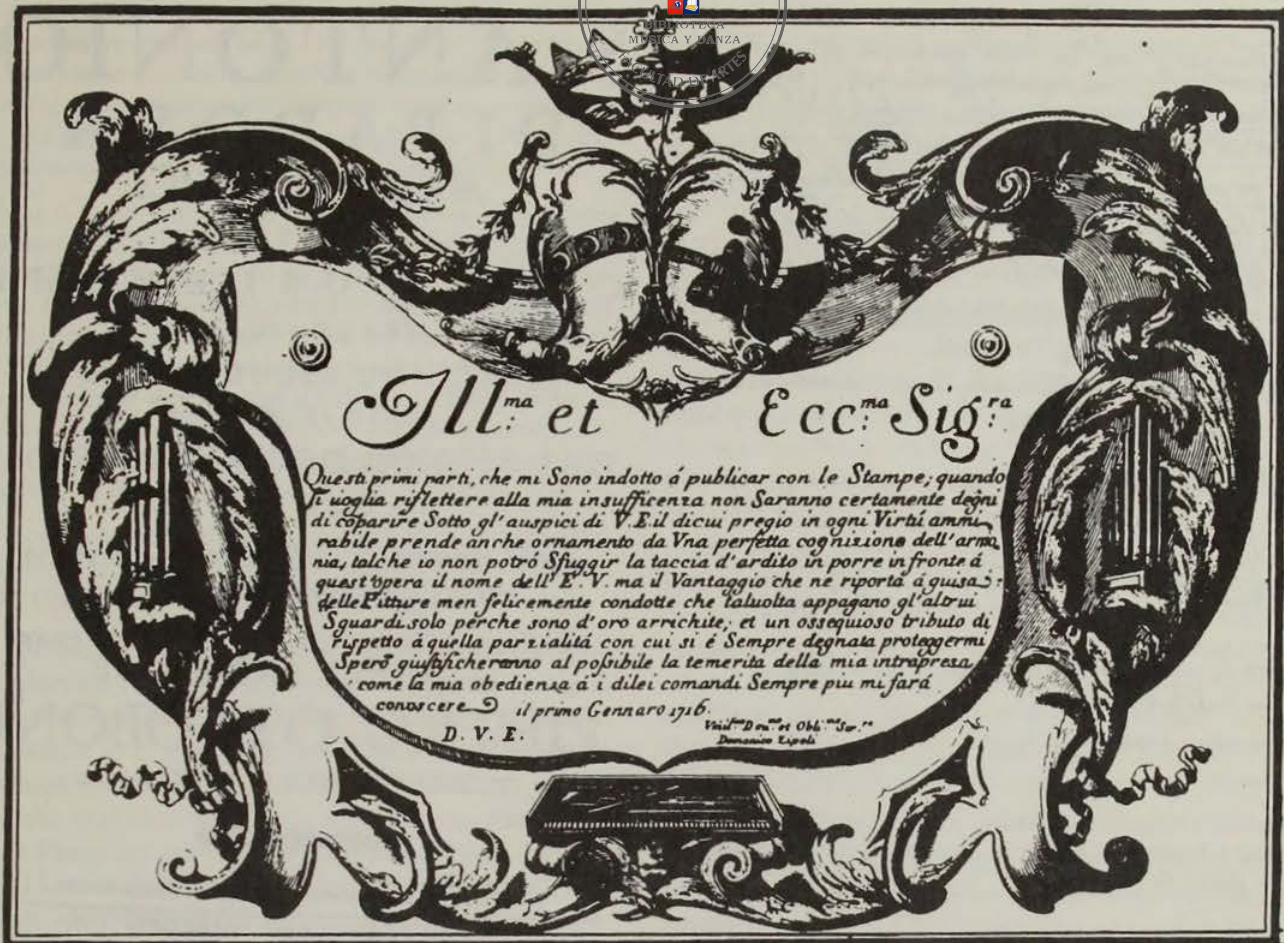 BIBLIOTECA
MÚSICA Y DANZA
FACULTAD DE ARTES
Ill:ma et Ecc:ma Sig:ra
Questi primi parti, che mi Sono indotto á publicar con le Stampe, quando
si uoglia riflettere alla mia insufficenza non Saranno certamente degni
di coparire Sotto gl' auspici di V. E. il dicui pregio in ogni Virtú ammi
rabile prende anche ornamento da Vna perfetta cognizione dell' armo
nia, talche io non potró Sfuggir la taccia d' ardito in porre in fronte á
quest' opera il nome dell' E. V. ma il Vantaggio che ne riporta á guisa
delle Pitture men felicemente condotte che taluolta appagano gl' altrui
Sguardi solo perche sono d' oro arrichite; et un ossequioso tributo di
rispetto á quella parzialitá con cui si é Sempre degnata proteggermi
Spero giustificheranno al possibile la temerita della mia intrapresa
come la mia obedienza á i dilei comandi Sempre piu mi fará
conoscere il primo Gennaro 1716.
D. V. E. Deu:mo et Obli:mo Ser:re
Domenico Zipoli